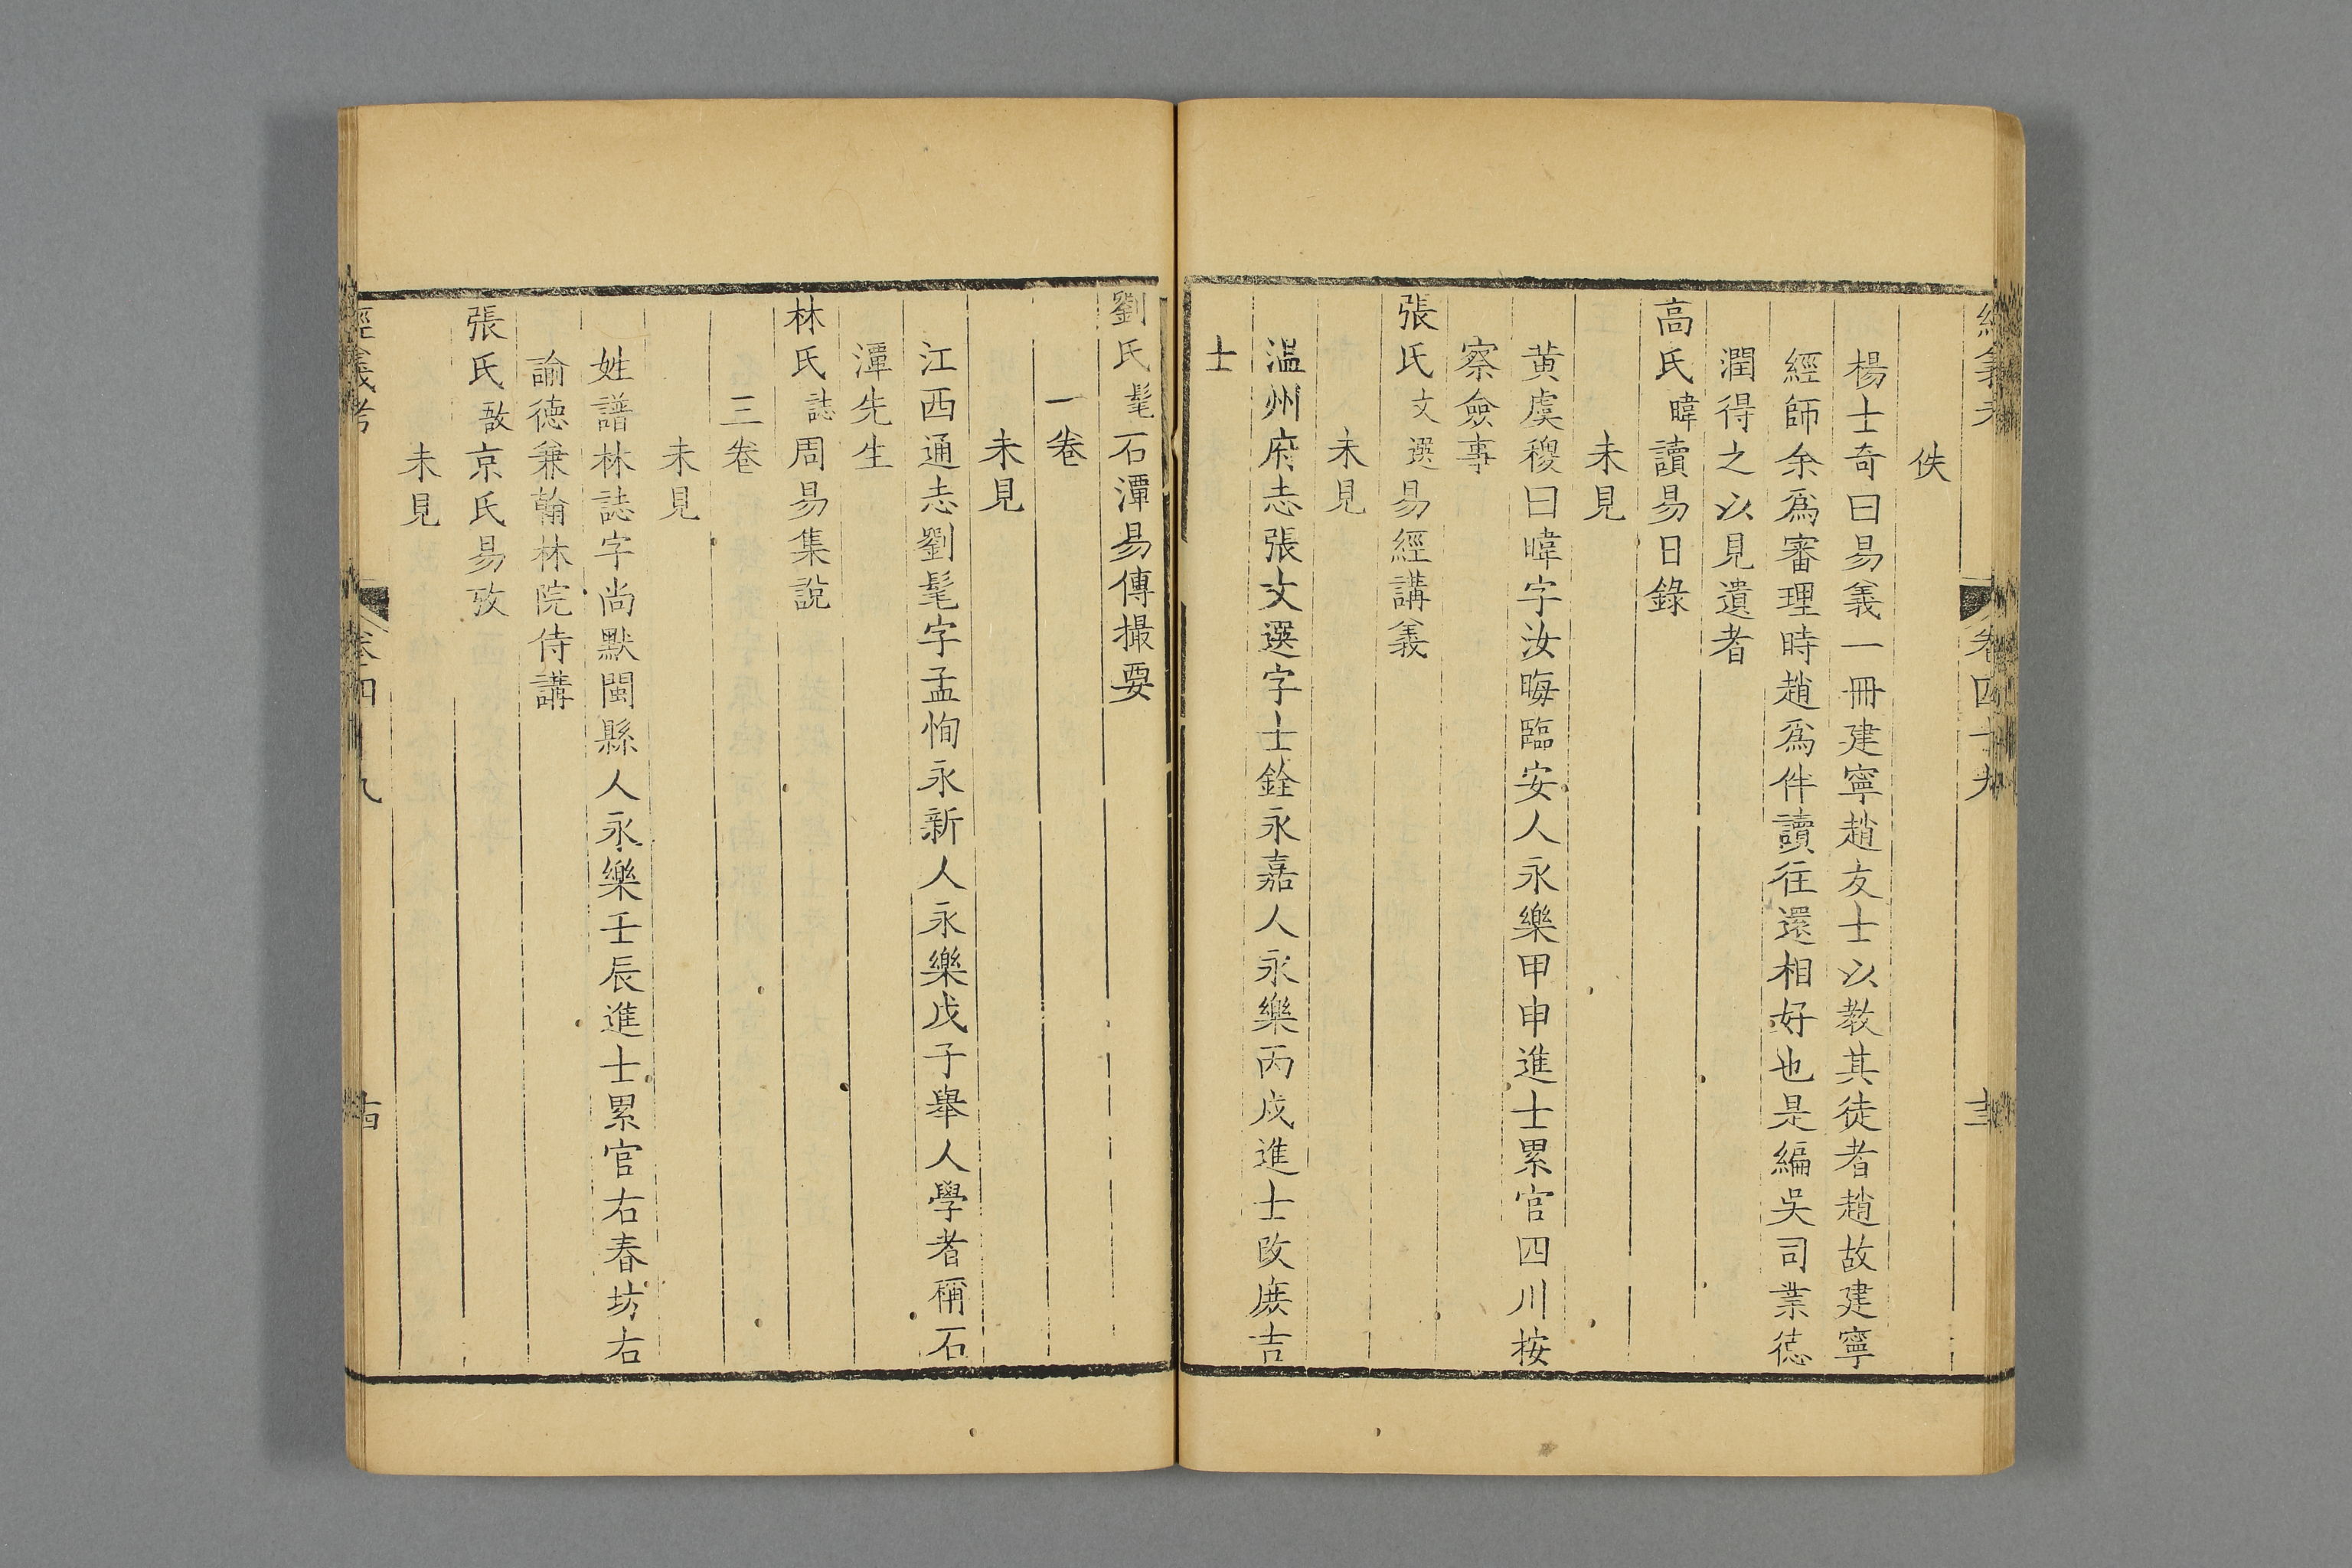 經義考 卷四十九 十三
佚
楊士奇曰易義一冊建寧趙友士以教其徒者趙故建寧
經師余爲審理時趙爲伴讀往還相好也是編吳司業徳
潤得之以見遺者
高氏暐讀易日錄
未見
黄虞稷曰暐字汝晦臨安人永樂甲申進士累官四川按
察僉事
張氏文選易經講義
未見
温州府志張文選字士銓永嘉人永樂丙戌進士改庶吉
士
劉氏髦石潭易傳撮要
一卷
未見
江西通志劉髦字孟恂永新人永樂戊子舉人學者稱石
潭先生
林氏誌周易集說
三卷
未見
姓譜林誌字尚默閩縣人永樂壬辰進士累官右春坊右
諭德兼翰林院侍講
張氏敔京氏易攷
未見
經義考 卷四十九 十四